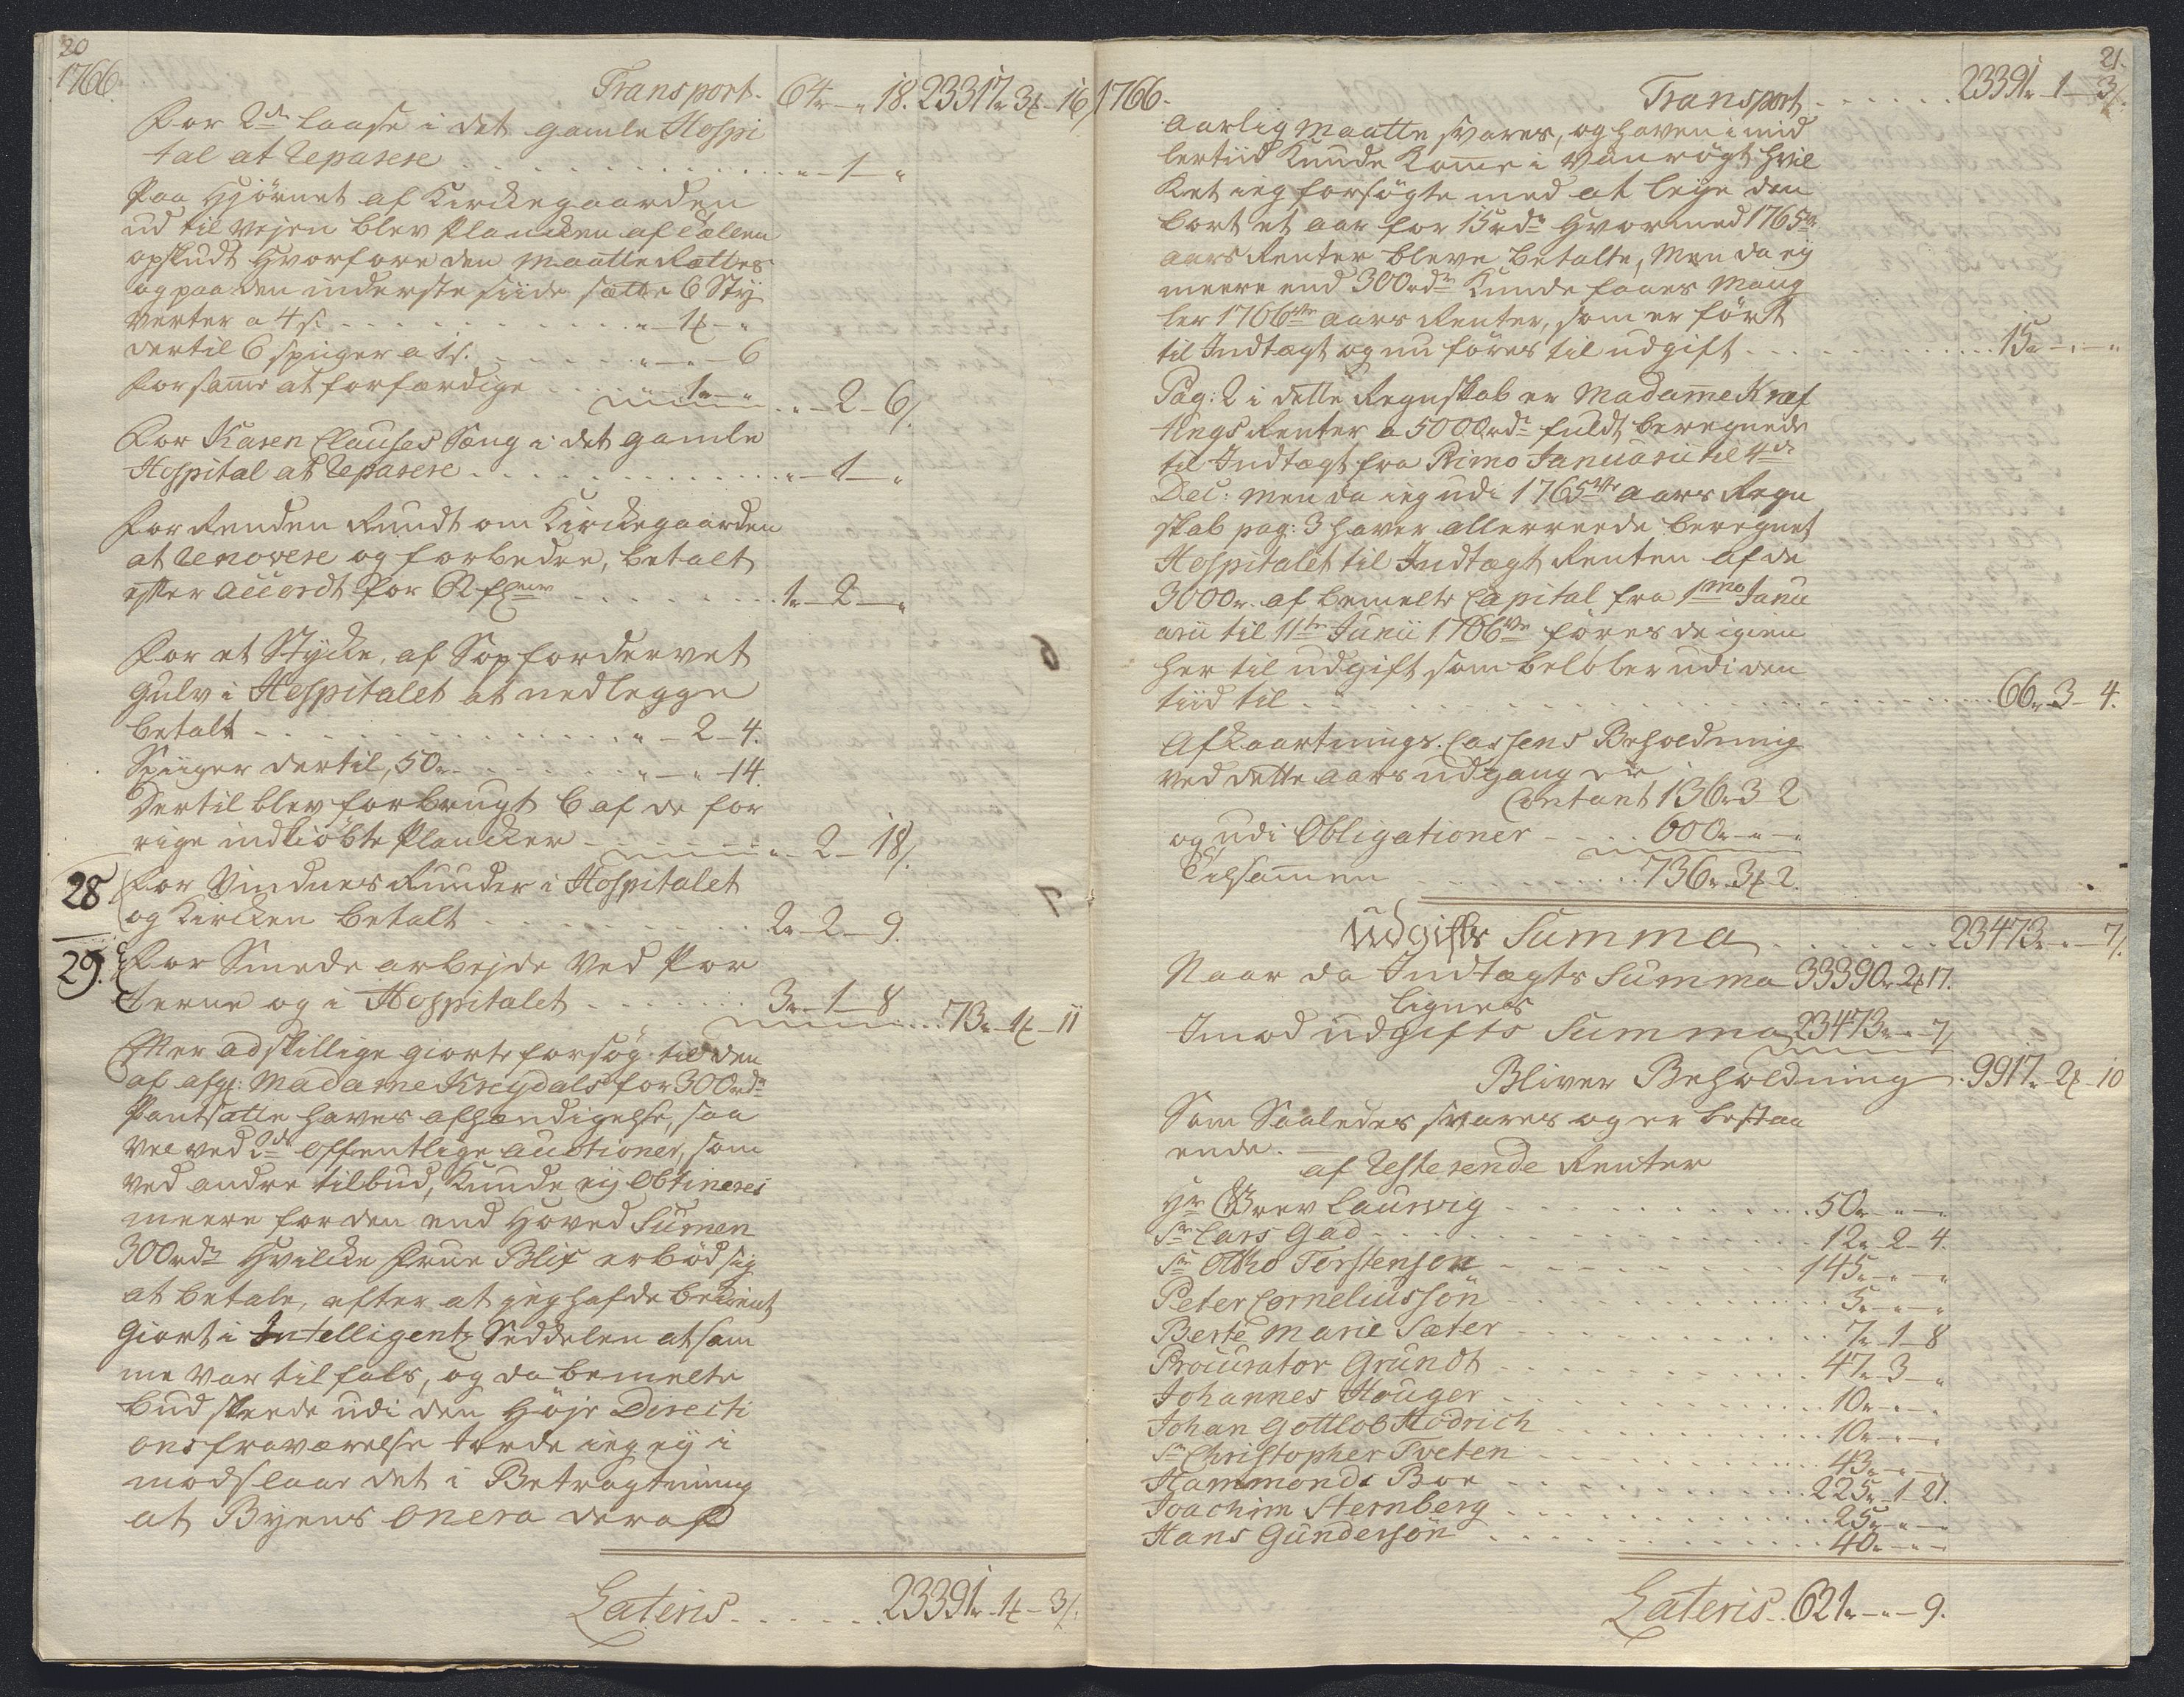 20
1766.
Transport. 64r - " 18. 23317r 3ƶ - 16/
For 2de laase i det gamle Hospi
tal at reparere . . . " - 1 - "
Paa Hjörnet af Kirkegaarden
ud til Vejen blev Plancken af Kulden
opskudt hvorfore den maatte Rettes
og paa den inderste siide sette 6 Sty
verter a 4 s. . . . " - 1ƶ - "
dertil 6 spiiger a 1 s. . . . " - " - 6
for samme at forfærdige . . . 1 - " . . " - 2 - 6/.
For Karen Clauses Seng i det gamle
Hospital at reparere . . . " - 1 - "
For Renden Rundt om Kirckegaarden
at renovere og forbedre, betalt
efter accordt for . . . 1r - 2 - "
For et Stycke, af Sop fordervet
Gulv i Hospitalet at nedlegge
betalt . . . " - 2 - 4.
Spiiger dertil, 50 . . . " - " - 14.
Dertil blev forbrugt 6 af de for
rige indkiöbte Plancker . . . " - 2 - 18/.
28 For Vindues Ruuder i Hospitalet
og Kircken betalt . . . 2r - 2 - 9.
29. For Smede arbejde ved Por
terne og i Hospitalet . . . 3r - 1 - 8 . . . 73r - 1ƶ - 11
Efter adskillige giorte forsög til den
af afg: Madame Kreydals for 300rdr
Pantsatte haves afhændigelse, saa
vel ved 2de offentlige auctioner, som
ved andre tilbud, kunde ej obtineres
meere for den end Hoved Summen
300rdr hvilcke Frue Blix erböd sig
at betale, efter at jeg hafde bekient
giort i Intelligentz Seddelen at sam
me var til fals, og da bemelte
bud skeede udi den Höje Directi
ons fraværelse torde jeg ej i
modslaae det i Betragtning
at Byens onera deraf
Lateris . . . 23391r - 1ƶ - 3/.
21.
1766.
Transport . . . 23391r - 1 - 3/.
aarlig maatte svares, og haven i mid
lertiid kunde komme i Vanrögt hvil
ket jeg forsögte med at leye den
bort et aar for 15rdr hvormed 1765de
aars Renter bleve betalte, Men da ej
meere end 300rdr kunde faaes Mang
ler 1766de aars Renter, som er fört
til Indtægt og nu föres til udgift . . . 15r - " - "
Pag: 2 i dette Regnskab er Madame Kræf
tings Renter a 5000rdr fuldt beregnede
til Indtægt fra Primo Januarii til 4de
Dec: men da jeg udi 1765de aars Regn
skab pag: 3 haver allerreede beregnet
Hospitalet til Indtægt Renten af de
3000r. af bemelte Capital fra 1mo Janu
arii til 11te Junii 1766de föres de igien
her til udgift som belöber udi den
tiid til . . . 66r - 3 - 4.
Afkaartnings Cassens Beholdning
ved dette aars udgang er
Contant 136r 3 2
og udi Obligationer . . . 600r - " - "
Tilsammen . . . 736r. 3ƶ 2.
Udgifts Summa . . . 23473r - " - 7/.
Naar da Indtægts Summa 33390r 2ƶ 17.
lignes
Imod udgifts Summa 23473r - " - 7/
Bliver Beholdning . 9917r - 2ƶ - 10
Som Saaledes svares og er bestaa
ende.
af resterende Renter
Hr Grev Laurvig . . . 50r - " - "
Sr Lars Gad . . . 12r - 2 - 4.
Sr Otto Torstensen . . . 145r - " - "
Peter Corneliussön . . . 5r - " - "
Berte Marie Sæter . . . 7r - 1 - 8
Procurator Grundt . . . 47r - 3 - "
Johannes Houger . . . 10r - " - "
Johan Gottlob Hödrich . . . 10r - " - "
Sr Christopher Tveten . . . 43r - " - "
Hammonds Boe . . . 225r - 1 - 21.
Joachim Sternberg . . . 25r - " - "
Hans Gundersön . . . 40r - " - "
Lateris . . 621r - " - 9.